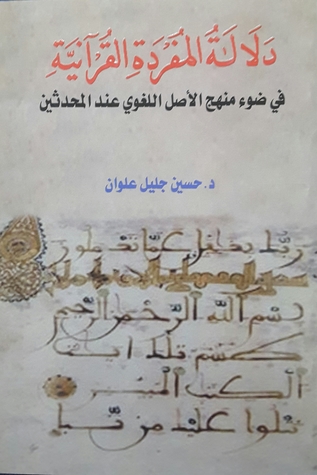 دَلَالَةُ المُفْرَدَةِ القُرْآنِيَّةِ
في ضوء منهج الأصل اللغوي عند المحدثين
د. حسين جليل علوان
بسم الله الرحمن الرحيم
طسم تلك ايت
الكتب المبين
نتلوا عليك من نبإ